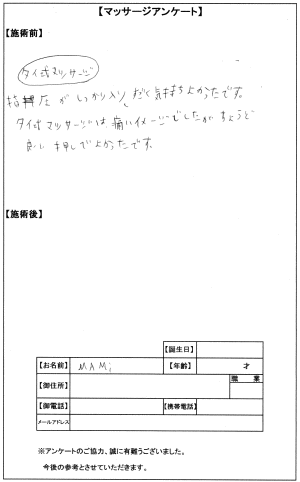 【マッサージアンケート】
【施術前】
タイ式マッサージ
指圧がしっかり入りだく気持ちよかったです。
タイ式マッサージは、痛いイメージでしたがちょうど
良い押しでよかったです。
【施術後】
【誕生日】
【お名前】 MAMi 【年齢】 才
【御住所】 職 業
【御電話】 【携帯電話】
メールアドレス
※アンケートのご協力、誠に有難うございました。
今後の参考とさせていただきます。